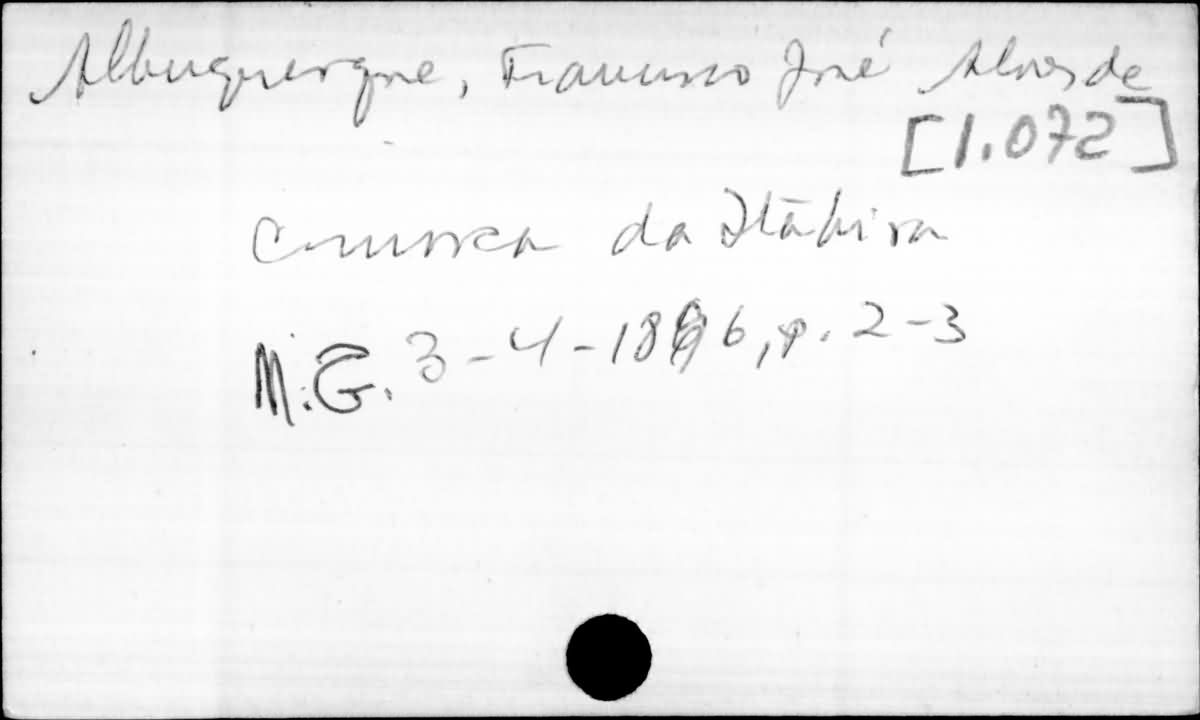 Albuquerque, Francisco José Alves de
[1.072]
Comarca da Itabira
M.G. 3-4-1896, p. 2-3